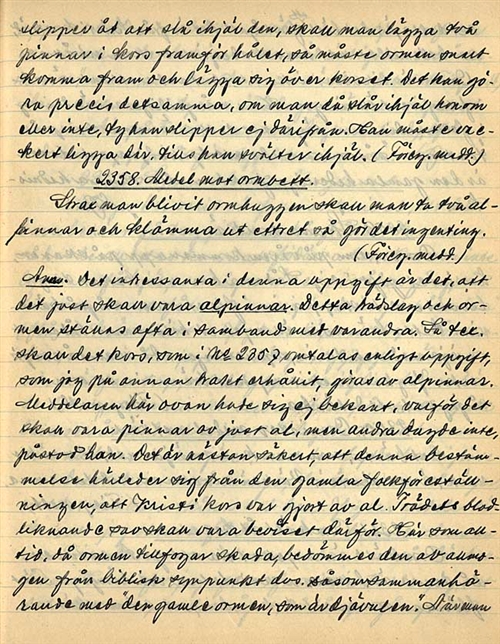 slipper åt att slå ihjäl den, skall man lägga två
pinnar i kors framför hålet, så måste ormen snart
komma fram och lägga sig över korset. Det kan gö-
ra precis detsamma, om man då slår ihjäl honom
eller inte, ty han slipper ej därifrån. Han måste vac-
kert ligga där, tills han svälter ihjäl. (Föreg. medd.)
2358. Medel mot ormbett.
Strax man blivit ormhuggen skall man ta två al-
pinnar och klämma ut ettret så gör det ingenting.
(Föreg. medd.)
Anm. Det intressanta i denna uppgift är det, att
det just skall vara alpinnar. Detta trädslag och or-
men ställas ofta i samband med varandra. Så t.ex.
skall det kors, som i No 2357 omtalas enligt uppgift,
som jag på annan hand erhållit, göras av alpinnar.
Meddelaren här ovan hade sig ej bekant, varför det
skall vara pinnar av just al, men andra dugde inte,
påstod han. Det är nästan säkert, att denna bestäm-
melse härleder sig från den gamla folkföreställ-
ningen, att Kristi kors var gjort av al. Trädets blod-
liknande sav skall vara beviset därför. Här som all-
tid, då ormen tillfogar skada, bedömmes den av allmo-
gen från biblisk synpunkt dvs. såsom sammanhö-
rande med "den gamle ormen, som är djävulen". När man